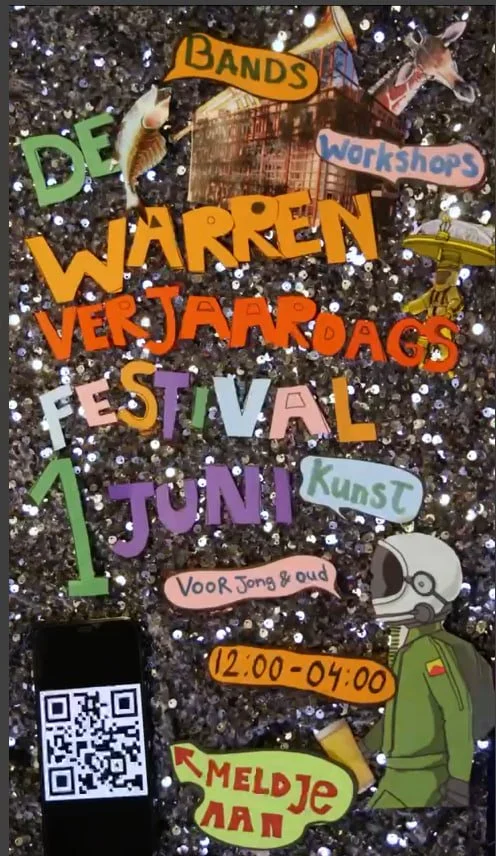 BANDS
DE
Workshops
WARREN
VERJAARDAGS
FESTIVAL
1 JUNI
KunST
VOOR Jong & oud
12:00-04:00
MELD JE
AAN